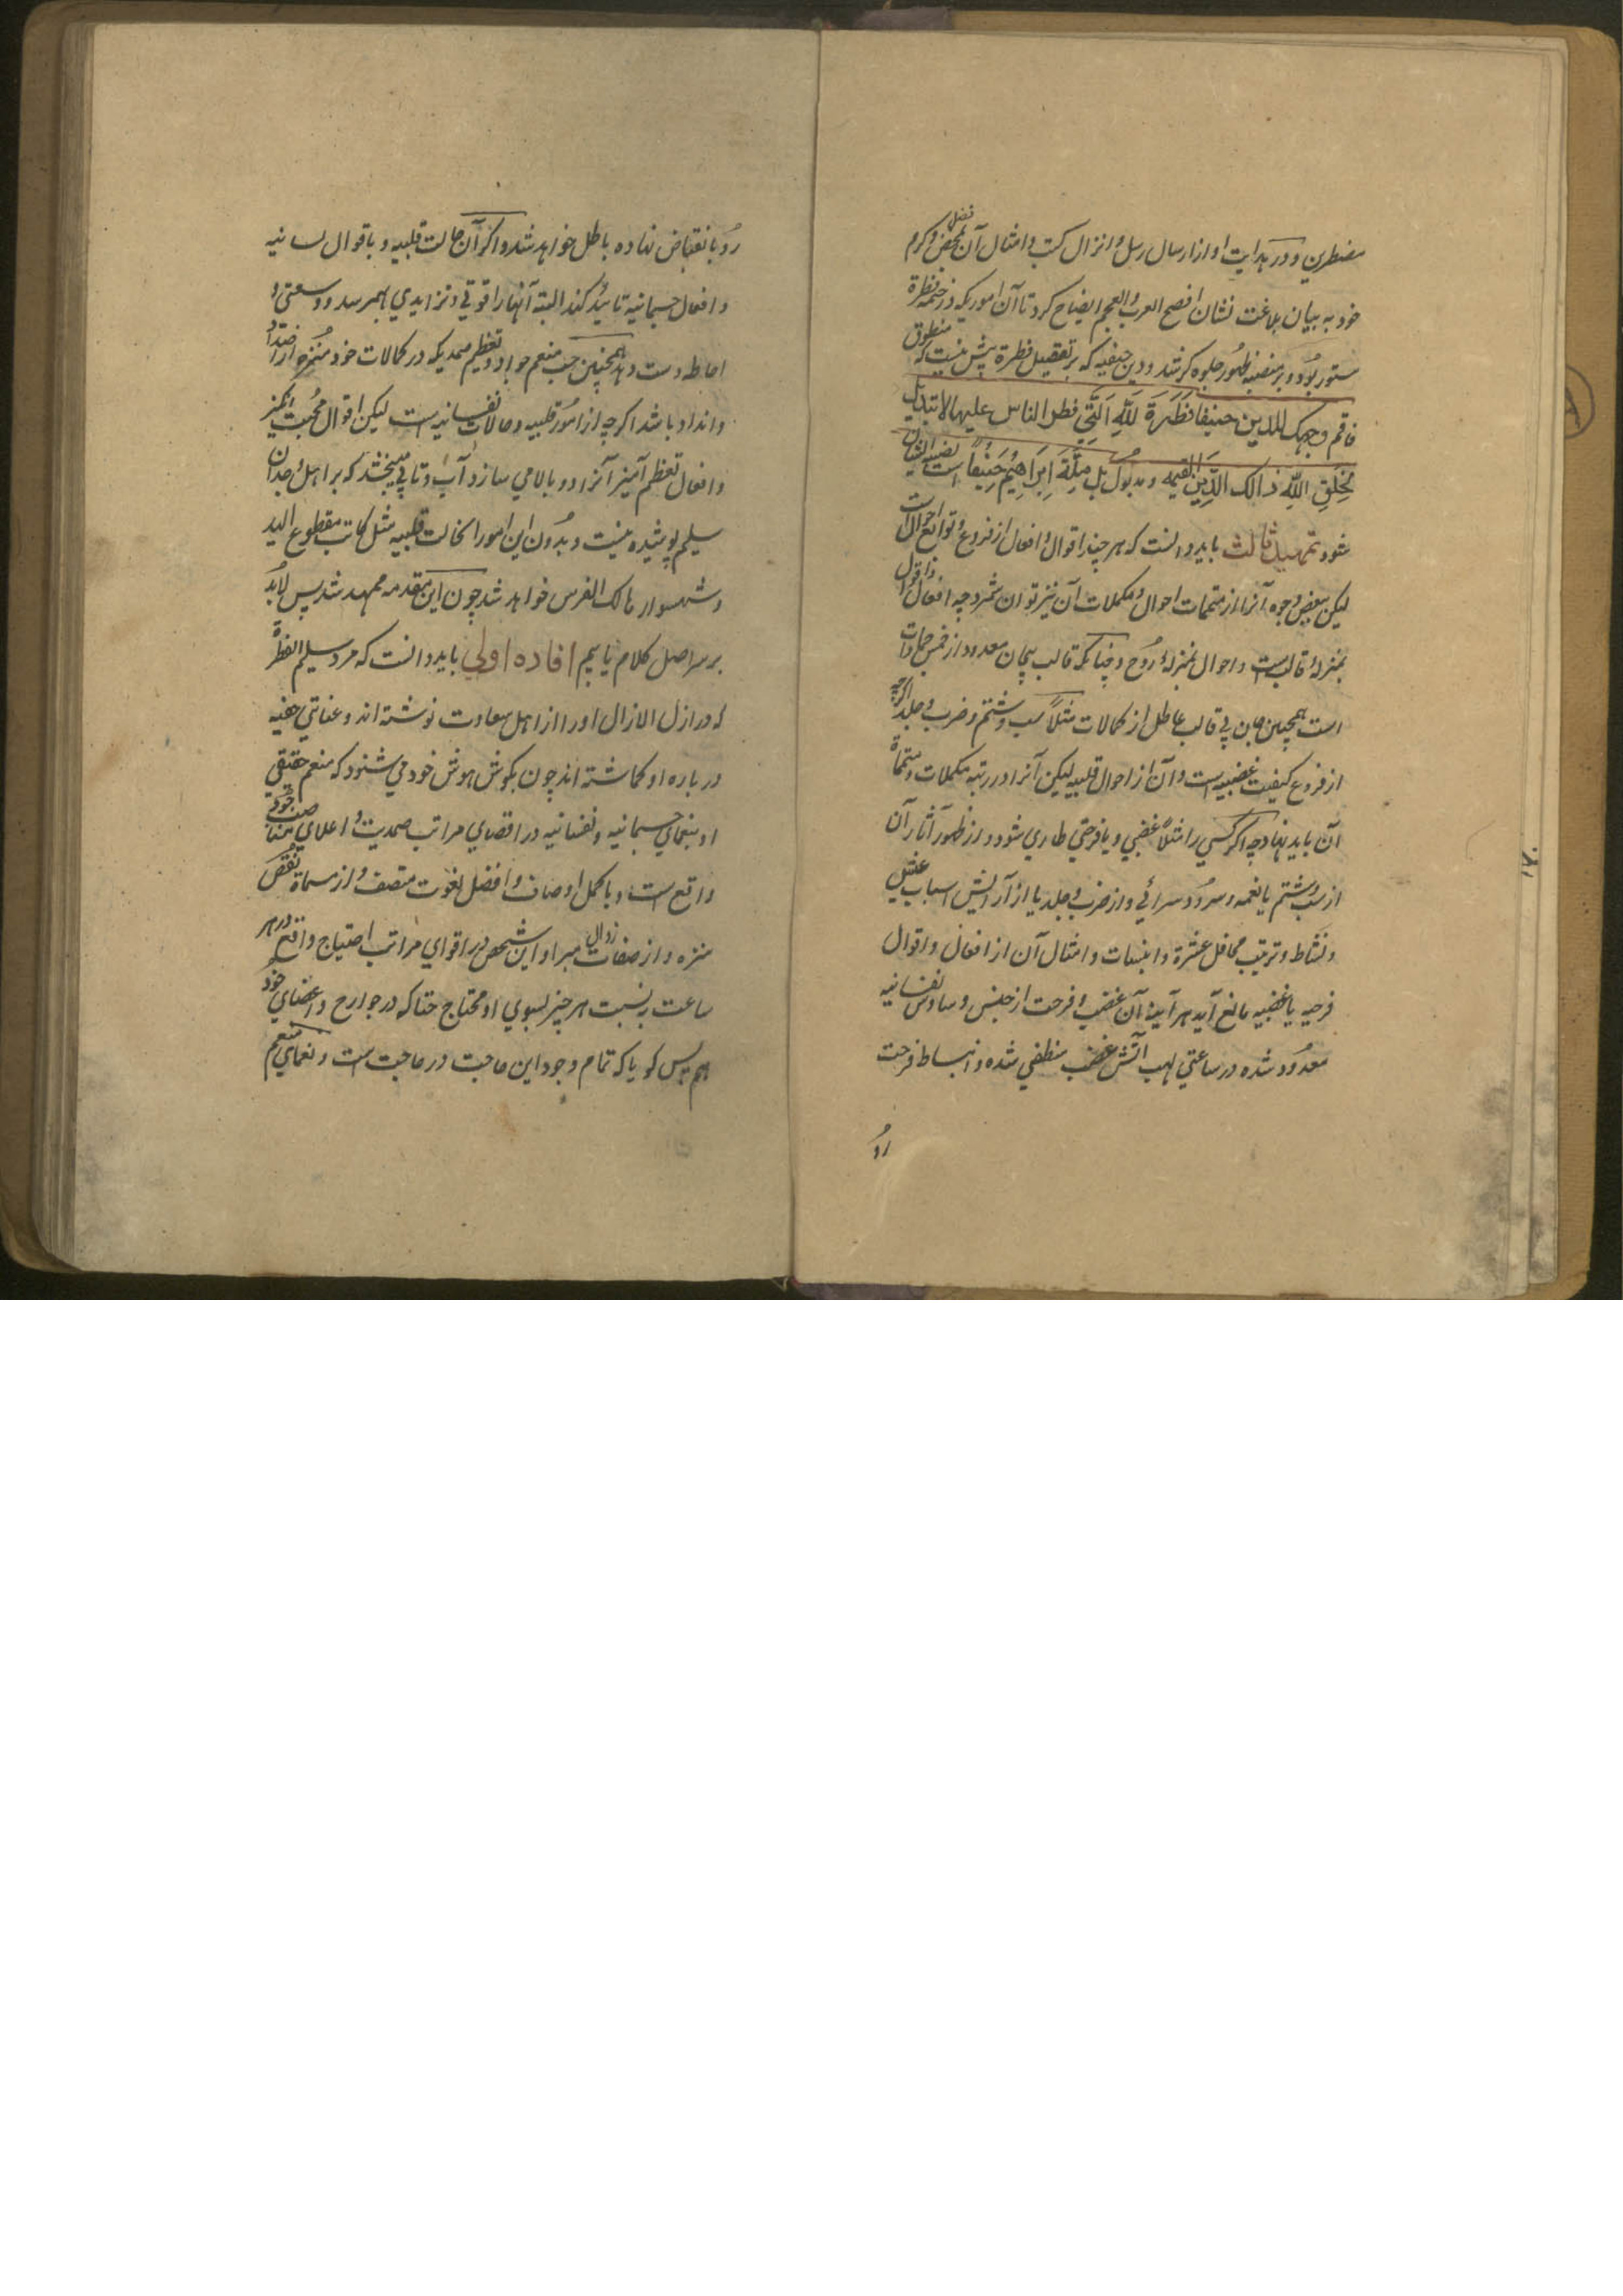 مضطرین و در هدایت او از ارسال رسل و انزال کتب و امثال آن بمحض فضل و کرم
خود به بیان بلاغت نشان افصح العرب والعجم ایضاح کرد تا آن اموریکه در فطرة
مستور بود و بر منصبه ظهور جلوه گر شد و دین حنیفیه که بر تفصیل فطرة بیش نیست که منطوق
فاقم وجهک للدین حنیفا فطرة لله التی فطر الناس علیها لا تبدیل
لخلق الله ذالک الدین القیمه و مدلول بل ملة ابراهیم حنیفا است
شود تمهید ثالث باید دانست که هر چند اقوال و افعال از فروع و توابع احوال است
لیکن ببعض وجوه آنرا از متممات احوال و مکملات آن نیز توان شمرد چه افعال و اقوال
بمنزلۀ قالب است و احوال بمنزلۀ روح و چنانکه قالب بیجان معدود از جمادات
است همچنین جان بی قالب عاطل از کمالات مثلاً سب و شتم و ضرب و جلد اگرچه
از فروع کیفیت غضبیه است و آن از احوال قلبیه لیکن آنرا در رتبه مکملات و متممات
آن باید نهاد چه اگر کسی را مثلاً غضبی و یا فرحتی طاری شود و از ظهور آثار آن
از سب و شتم یا نغمه و سرود سرائی و از ضرب و جلد یا از آرایش اسباب عیش
و نشاط و ترتیب محافل عشرة و انبساط و امثال آن از افعال و اقوال
فرحیه یا غضبیه مانع آید هر آینه آن غضب و فرحت از جنس وساوس نفسانیه
معدود شده در ساعتی لهب آتش غضب منطفی شده و انبساط فرحت
رو
رو بانقباض نهاده باطل خواهد شد و اگر آن حالت قلبیه و باقوال لسانیه
و افعال جسمانیه تائید کند البته آنها را قوتی و تزایدی بهم رسد و وسعتی و
احاطه دست دهد همچنین حب منعم جواد و تعظیم صمدیکه در کمالات خود منزه از اضداد
و انداد باشد اگرچه از امور قلبیه و حالات نفسانیه است لیکن اقوال محبت انگیز
و افعال تعظم آمیز آنرا دوبالا می سازد و آب و تابی میبخشد که بر اهل وجدان
سلیم پوشیده نیست و بدون این امور انحالت قلبیه مثل کاتب مقطوع الید
و شهسوار هالک الفرس خواهد شد چون این مقدمه ممهد شد پس لابد
بر سر اصل کلام یابیم افاده اولی باید دانست که مرد سلیم الفطرة
که در ازل الازال او را از اهل سعادت نوشته اند و عنایتی خفیه
در باره او گماشته اند چون بگوش هوش خود می شنود که منعم حقیقی
او بنعمای جسمانیه و نفسانیه در اقصای مراتب صمدیت و اعلای
واقع است و باکمل اوصاف و افضل نعوت متصف و از سماة نقص
منزه و از صفات زوال مبرا و این شخص در اقوای مراتب احتیاج واقع در هر
ساعت به نسبت هر چیز بسوی او محتاج حتا که در جوارح و اعضای خود
هم پس گویا که تمام وجود این حاجت در حاجت است و نعمای منعم
۱۷۰